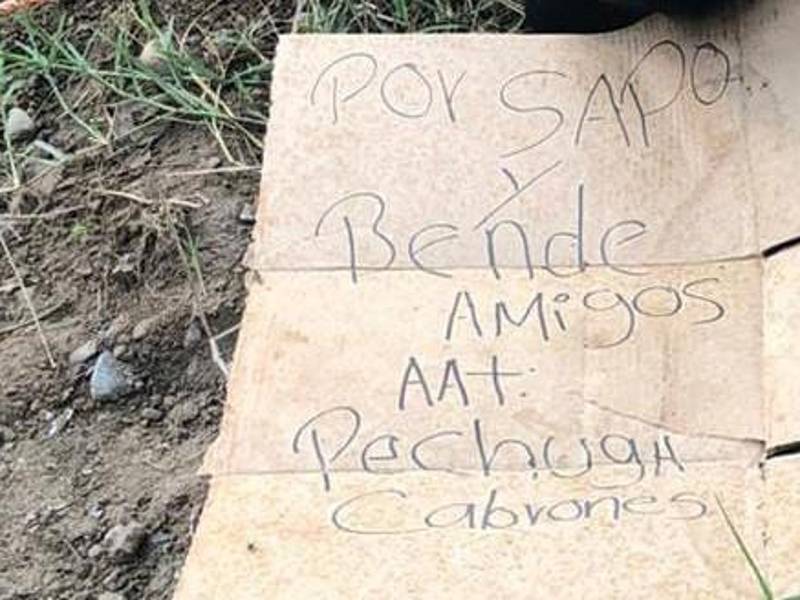 Por SAPO..
y
Bende
AMigos
AAt:
PechugA
Cabrones